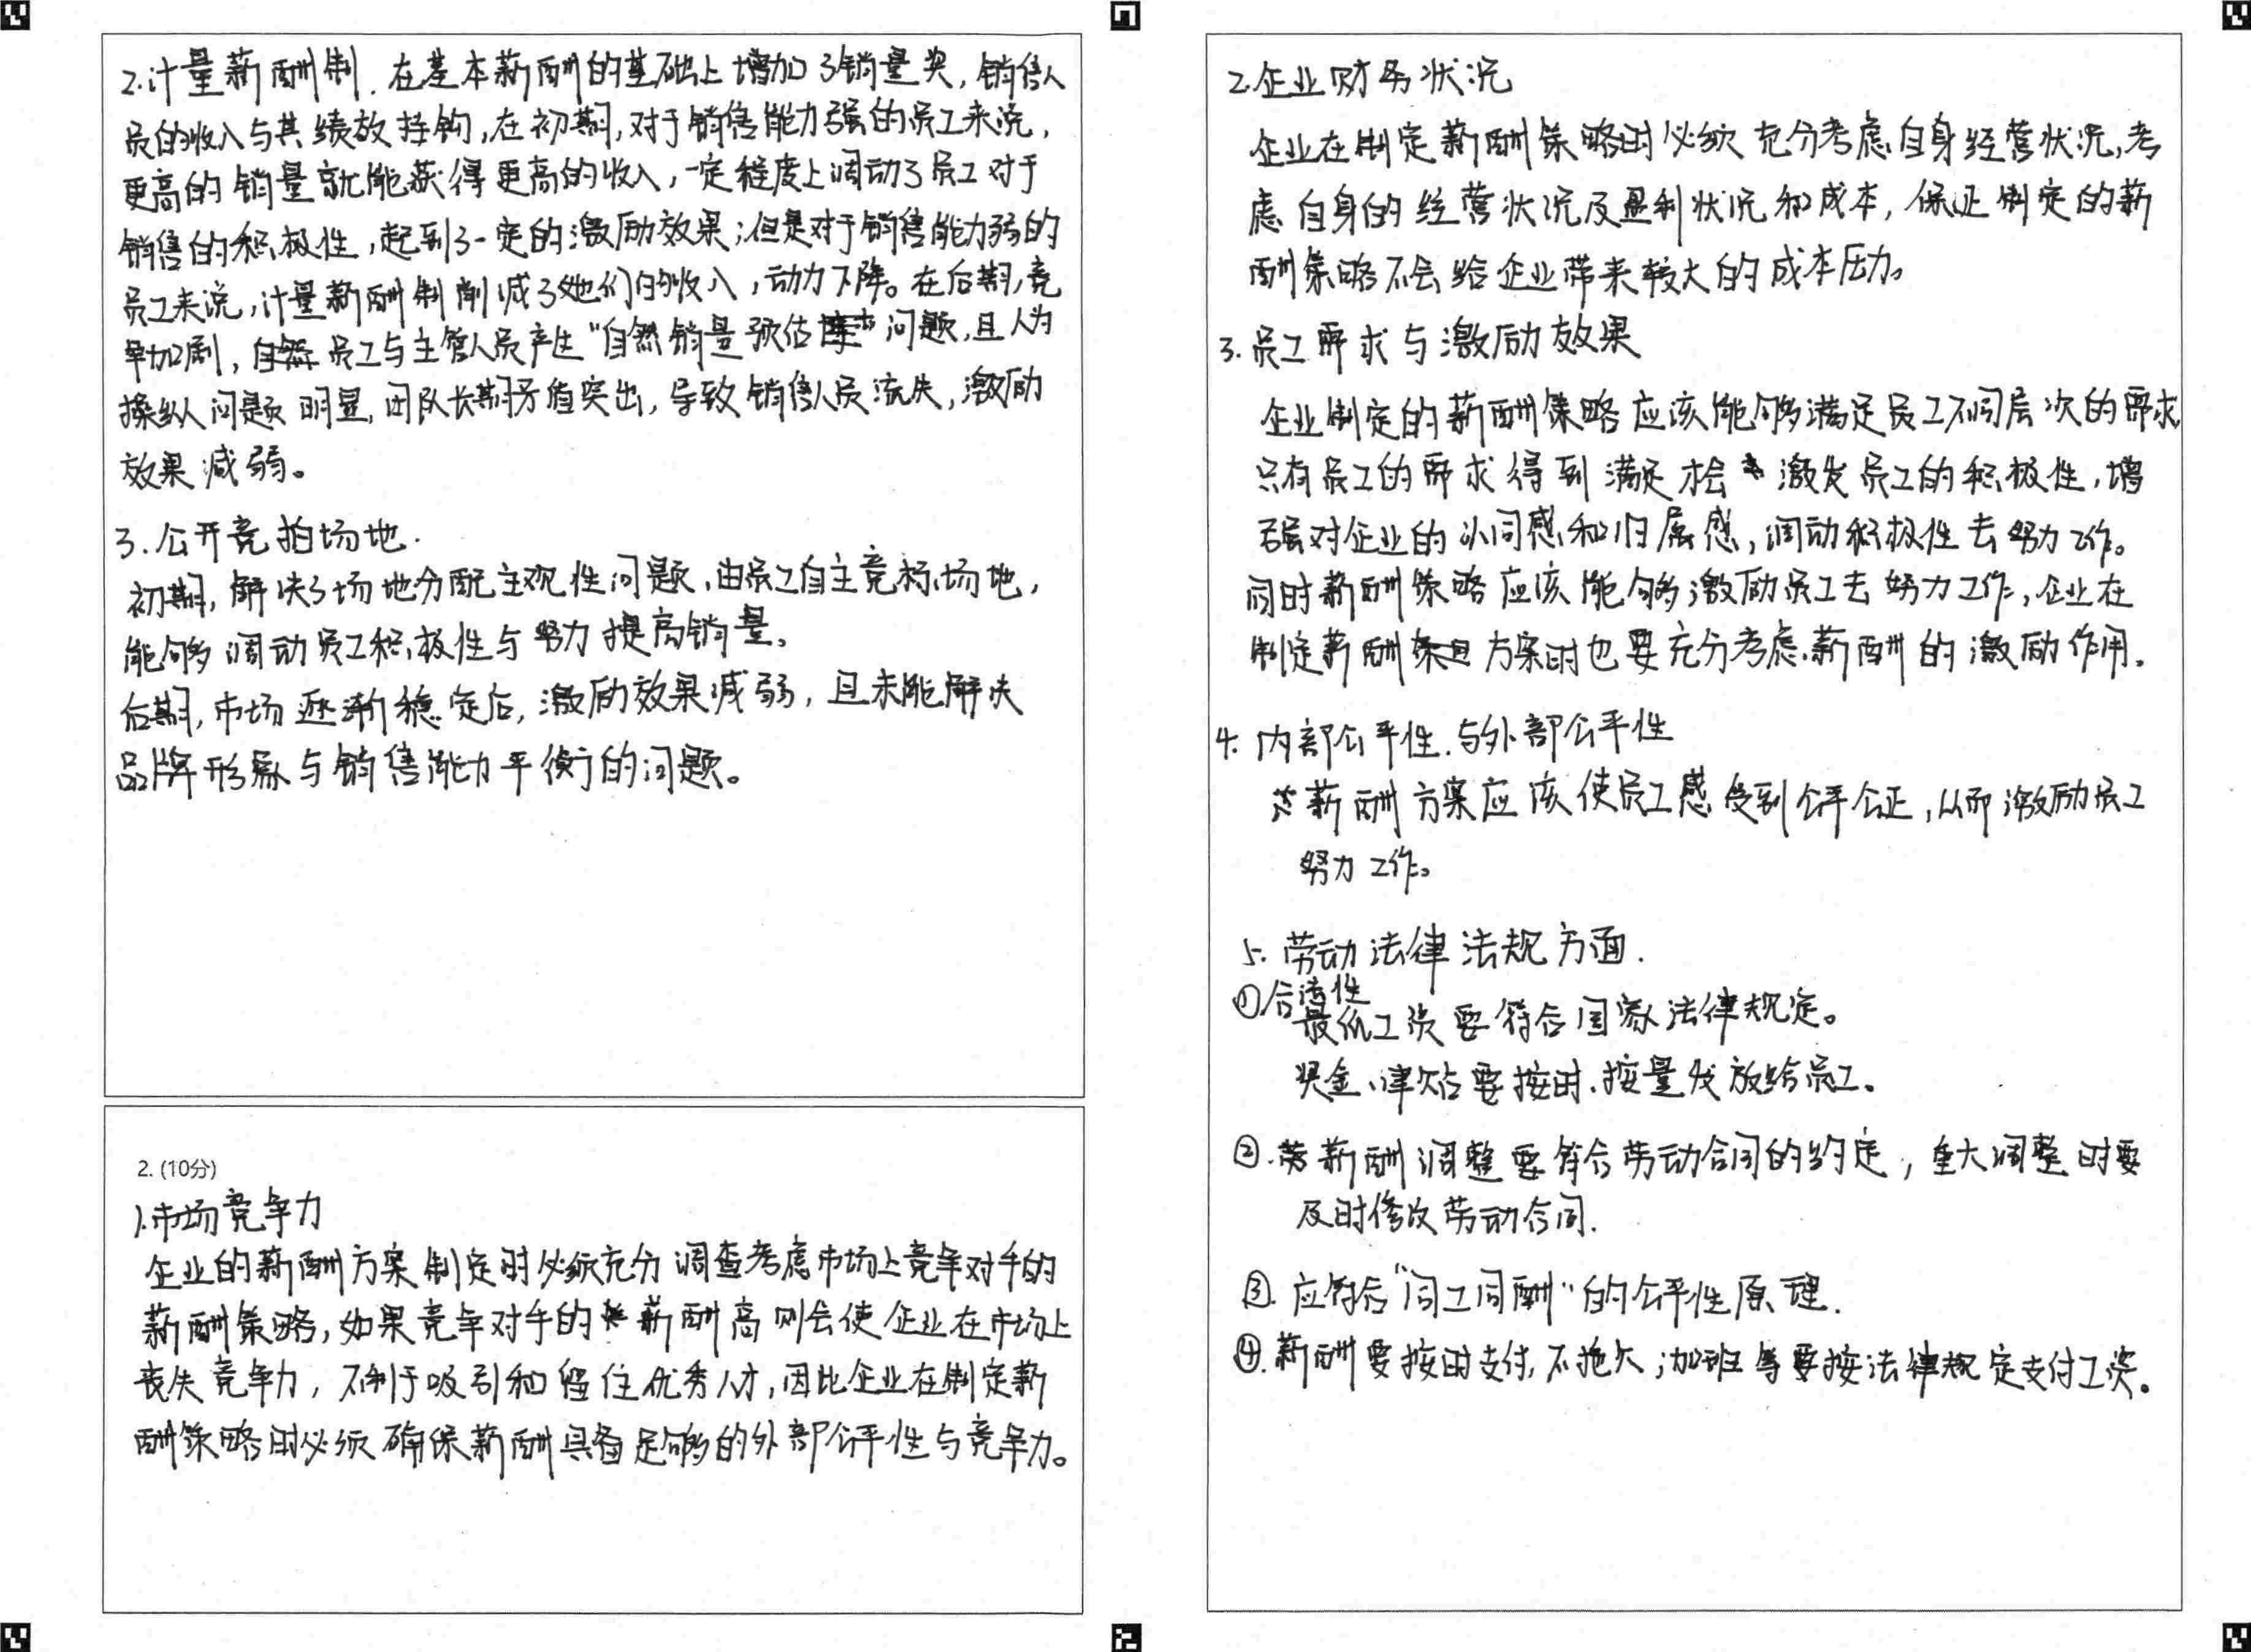 2.计量薪酬制.在基本薪酬的基础上增加了销量奖,销售人
员的收入与其绩效挂钩,在初期,对于销售能力强的员工来说,
更高的销量就能获得更高的收入,一定程度上调动了员工对于
销售的积极性,起到了一定的激励效果;但是对于销售能力弱的
员工来说,计量薪酬制削减了她们的收入,动力下降。在后期,竞
争加剧,员工与主管人员产生“自然销量预估”问题,且人为
操纵问题明显,团队长期矛盾突出,导致销售人员流失,激励
效果减弱。
3.公开竞拍场地.
初期,解决了场地分配主观性问题,由员工自主竞标场地,
能够调动员工积极性与努力提高销量。
后期,市场逐渐稳定后,激励效果减弱,且未能解决
品牌形象与销售能力平衡的问题。
2. (10分)
1.市场竞争力
企业的薪酬方案制定时必须充分调查考虑市场上竞争对手的
薪酬策略,如果竞争对手的薪酬高则会使企业在市场上
丧失竞争力,不利于吸引和留住优秀人才,因此企业在制定薪
酬策略时必须确保薪酬具备足够的外部公平性与竞争力。
2.企业财务状况
企业在制定薪酬策略时必须充分考虑自身经营状况,考
虑自身的经营状况及盈利状况和成本,保证制定的薪
酬策略不会给企业带来较大的成本压力。
3.员工需求与激励效果
企业制定的薪酬策略应该能够满足员工不同层次的需求,
只有员工的需求得到满足才会激发员工的积极性,增
强对企业的认同感和归属感,调动积极性去努力工作。
同时薪酬策略应该能够激励员工去努力工作,企业在
制定薪酬方案时也要充分考虑薪酬的激励作用。
4.内部公平性与外部公平性
薪酬方案应该使员工感受到公平公正,从而激励员工
努力工作。
5.劳动法律法规方面.
①合法性
最低工资要符合国家法律规定。
奖金、津贴要按时、按量发放给员工。
②.薪酬调整要符合劳动合同的约定,重大调整时要
及时修改劳动合同.
③.应符合“同工同酬”的公平性原理.
④.薪酬要按时支付,不拖欠;加班等要按法律规定支付工资。